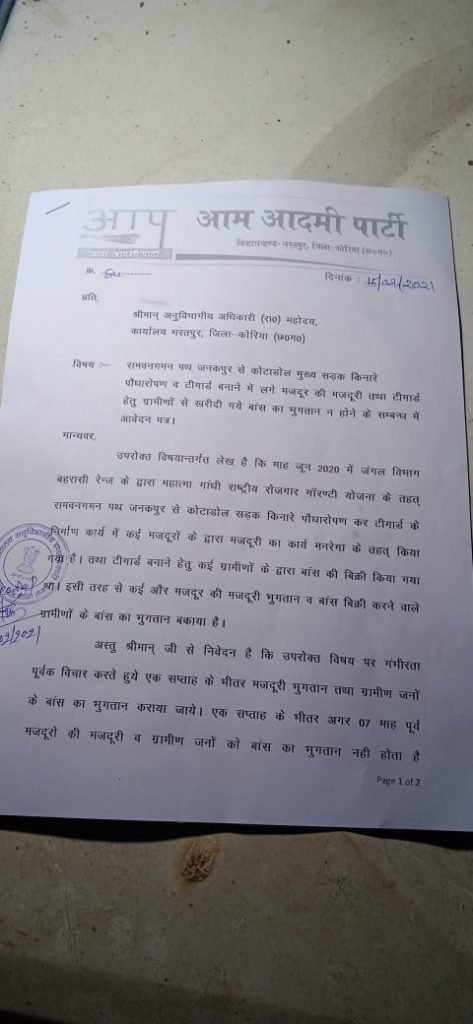 आप आम आदमी पार्टी
विकासखण्ड-भरतपुर, जिला-कोरिया (छ०ग०)
क्र.
दिनांक : 15/02/2021
प्रति,
श्रीमान् अनुविभागीय अधिकारी (रा०) महोदय,
कार्यालय भरतपुर, जिला-कोरिया (छ०ग०)
विषय :- रामवनगमन पथ जनकपुर से कोटाडोल मुख्य सड़क किनारे
पौधारोपण व टीगार्ड बनाने में लगे मजदूर की मजदूरी तथा टीगार्ड
हेतु ग्रामीणों से खरीदी गये बांस का भुगतान न होने के सम्बन्ध में
आवेदन पत्र।
मान्यवर,
उपरोक्त विषयान्तर्गत लेख है कि माह जून 2020 में जंगल विभाग
बहरासी रेन्ज के द्वारा महात्मा गांधी राष्ट्रीय रोजगार गॉरण्टी योजना के तहत्
रामवनगमन पथ जनकपुर से कोटाडोल सड़क किनारे पौधारोपण कर टीगार्ड के
निर्माण कार्य में कई मजदूरों के द्वारा मजदूरी का कार्य मनरेगा के तहत् किया
गया है। तथा टीगार्ड बनाने हेतु कई ग्रामीणों के द्वारा बांस की बिक्री किया गया
था। इसी तरह से कई और मजदूर की मजदूरी भुगतान व बांस बिक्री करने वाले
ग्रामीणों के बांस का भुगतान बकाया है।
अस्तु श्रीमान् जी से निवेदन है कि उपरोक्त विषय पर गंभीरता
पूर्वक विचार करते हुये एक सप्ताह के भीतर मजदूरी भुगतान तथा ग्रामीण जनों
के बांस का भुगतान कराया जाये। एक सप्ताह के भीतर अगर 07 माह पूर्व
मजदूरो की मजदूरी व ग्रामीण जनों को बांस का भुगतान नही होता है
Page 1 of 2